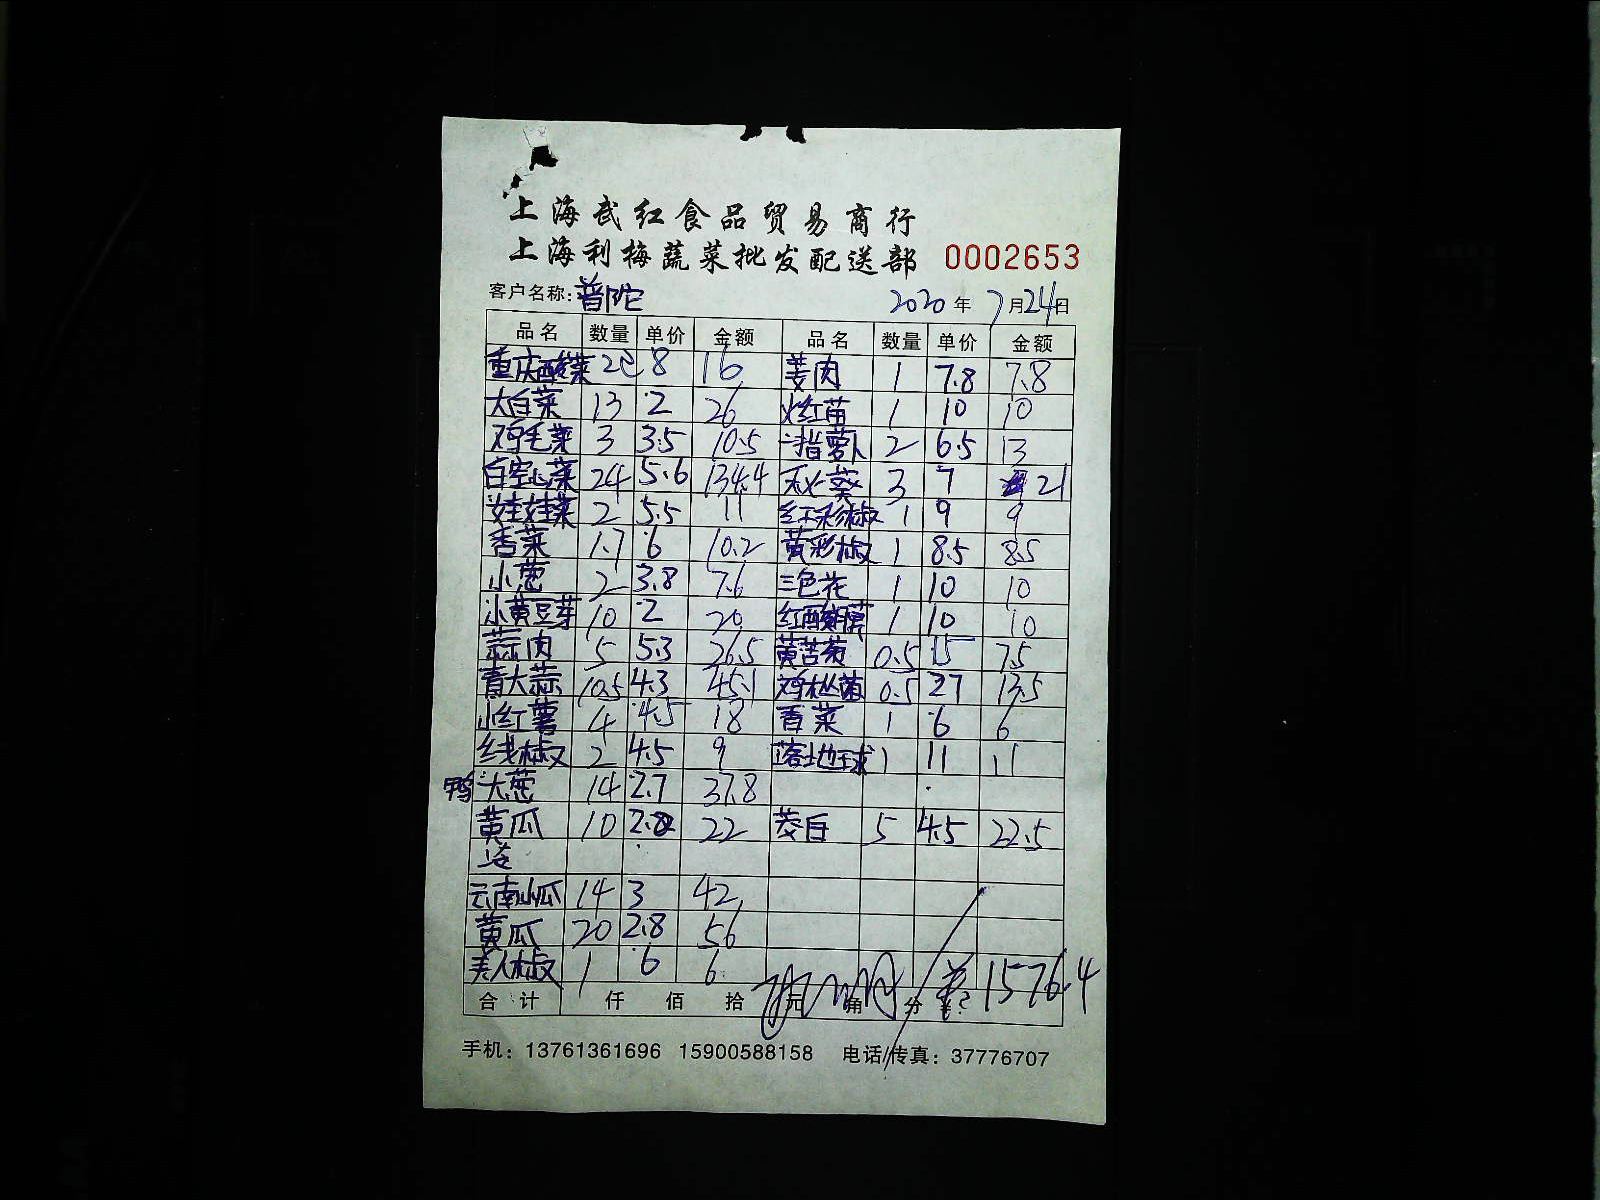 上海武红食品贸易商行
上海利梅蔬菜批发配送部 0002653
客户名称: 普陀 2020年7月24日
品名 数量 单价 金额 品名 数量 单价 金额
重庆酸菜 2包 8 16 姜肉 1 7.8 7.8
大白菜 13 2 26 红苗 1 10 10
鸡毛菜 3 3.5 10.5 指萝卜 2 6.5 13
白空心菜 24 5.6 134.4 秋葵 3 7 21
娃娃菜 2 5.5 11 红彩椒 1 9 9
香菜 1.7 6 10.2 黄彩椒 1 8.5 8.5
小葱 2 3.8 7.6 三色花 1 10 10
小黄豆芽 10 2 20 红酸膜 1 10 10
蒜肉 5 5.3 26.5 黄苦菊 0.5 15 7.5
青大蒜 10.5 4.3 45.1 鸡枞菌 0.5 27 13.5
小红薯 4 4.5 18 香菜 1 6 6
线椒 2 4.5 9 落地球 1 11 11
鸭 大葱 14 2.7 37.8
黄瓜 10 2.2 22 茭白 5 4.5 22.5
云南小瓜 14 3 42
黄瓜 20 2.8 56
美人椒 1 6 6
合计 仟 佰 拾 元 角 分 ¥: 1576.4
手机: 13761361696 15900588158 电话/传真: 37776707